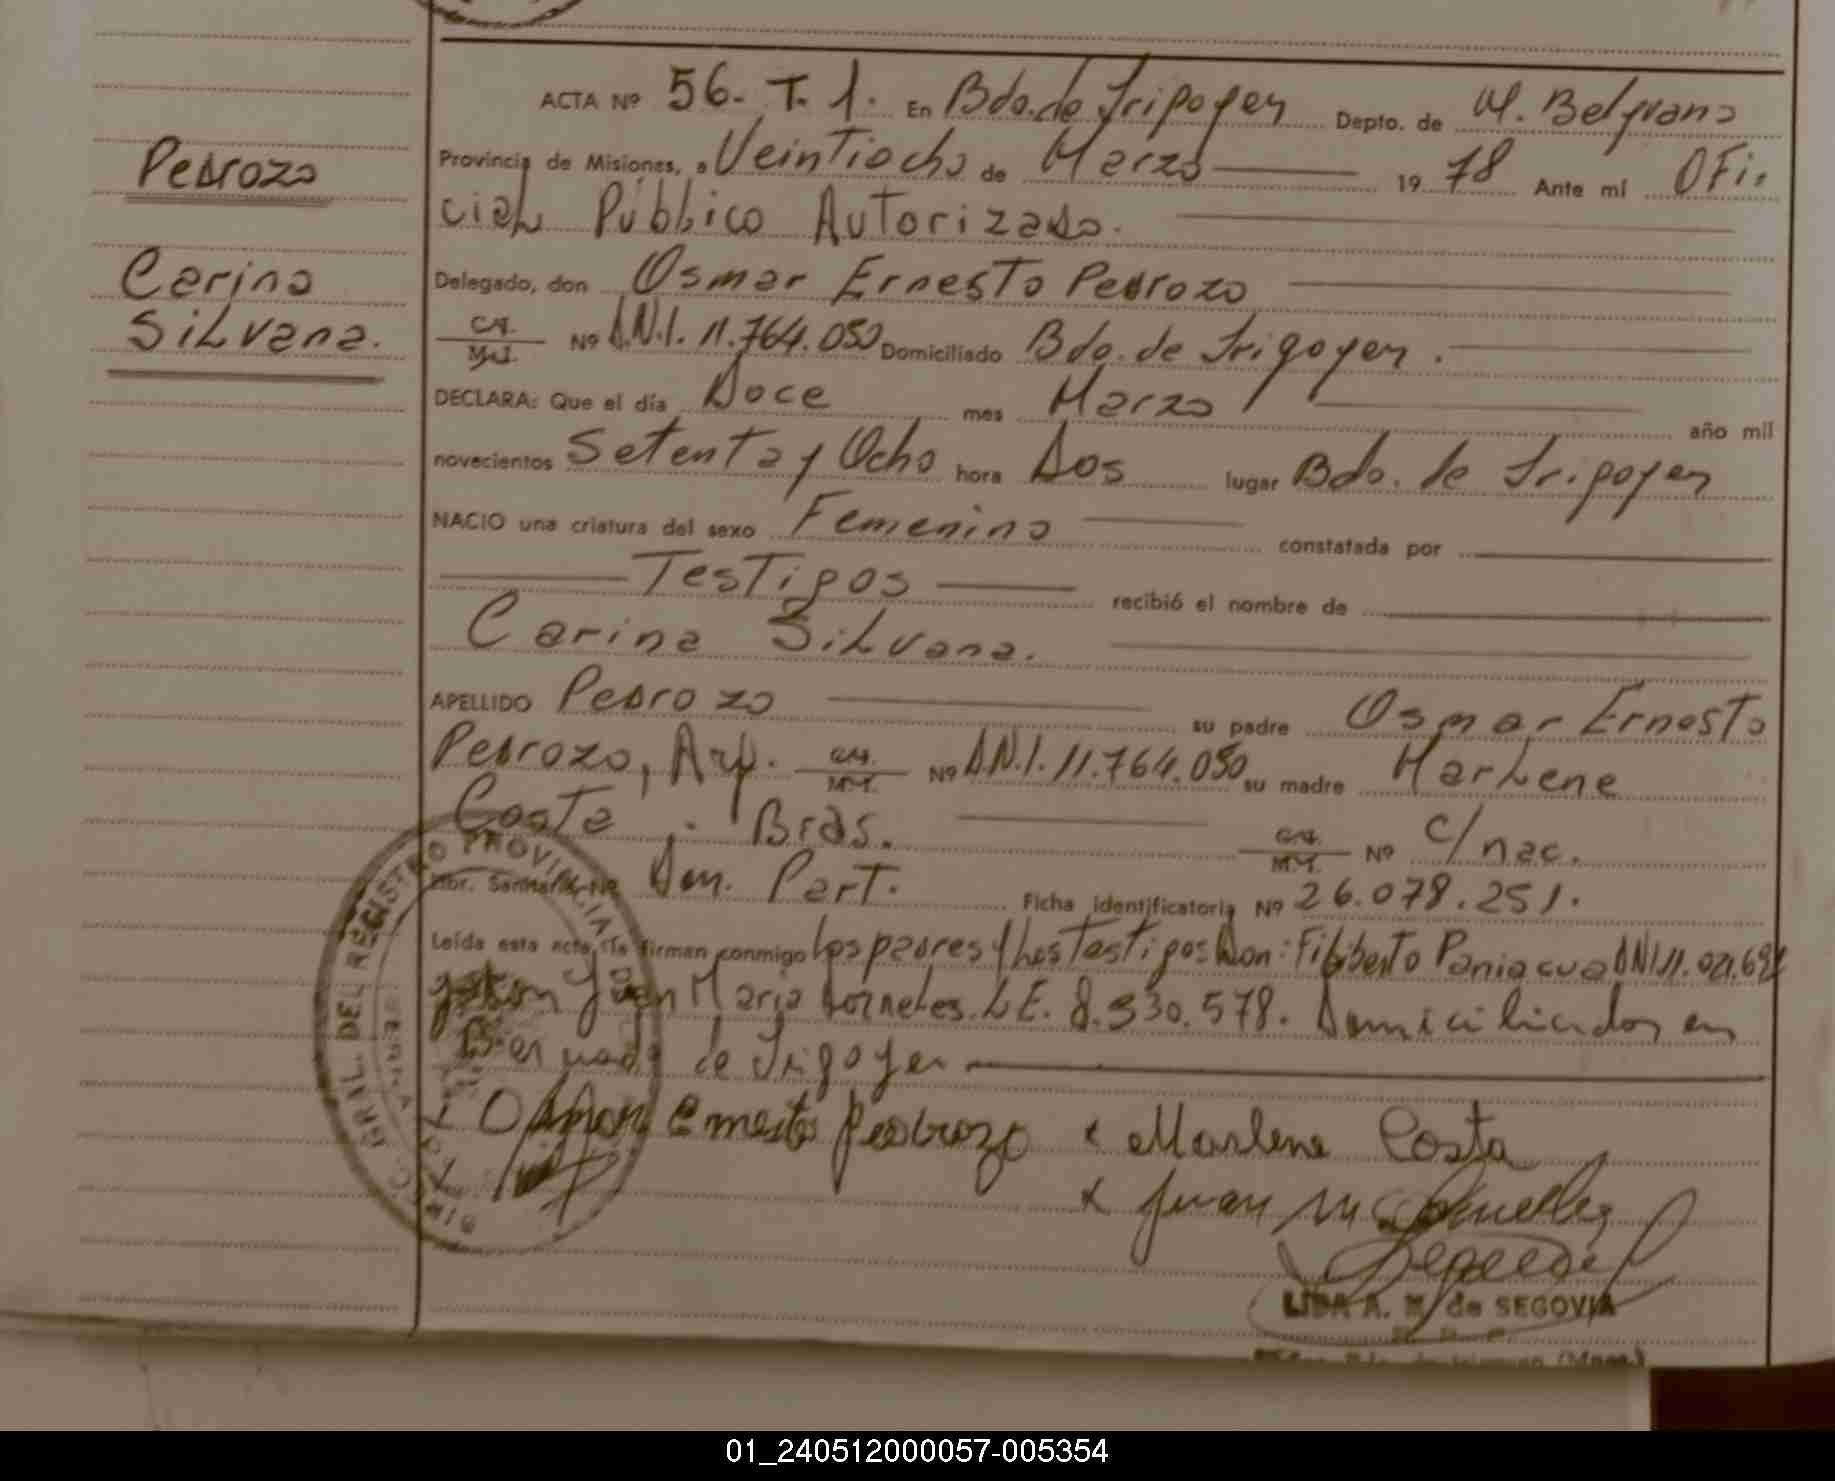 Pedrozo
Carina
Silvana.
ACTA Nº 56. T. 1. En Bdo. de Irigoyen Depto. de M. Belgrano
Provincia de Misiones, a Veintiocho de Marzo 19 78 Ante mí Ofi-
cial Público Autorizado.
Delegado, don Osmar Ernesto Pedrozo
C.I. M.I. Nº D.N.I. 11.764.050 Domiciliado Bdo. de Irigoyen.
DECLARA: Que el día Doce mes Marzo año mil
novecientos Setenta y Ocho hora Dos lugar Bdo. de Irigoyen
NACIO una criatura del sexo Femenino constatada por
Testigos recibió el nombre de
Carina Silvana.
APELLIDO Pedrozo su padre Osmar Ernesto
Pedrozo, Arg. C.I. M.I. Nº D.N.I. 11.764.050 su madre Marlene
Costa, Bras. C.I. M.I. Nº c/nac.
Libr. Sanitaria Nº Dom. Part. Ficha identificatoria Nº 26.078.251.
Leída esta acta la firman conmigo los padres y los Testigos Don: Filiberto Paniagua DNI 11.021.692
Juan Maria L.E. 8.330.578. Domiciliados en
Bernardo de Irigoyen
x Osmar Ernesto Pedrozo x Marlene Costa
x Juan M
LIDA A. M. de SEGOVIA
DIRECC. GRAL. DEL REGISTRO PROVINCIAL
01_240512000057-005354